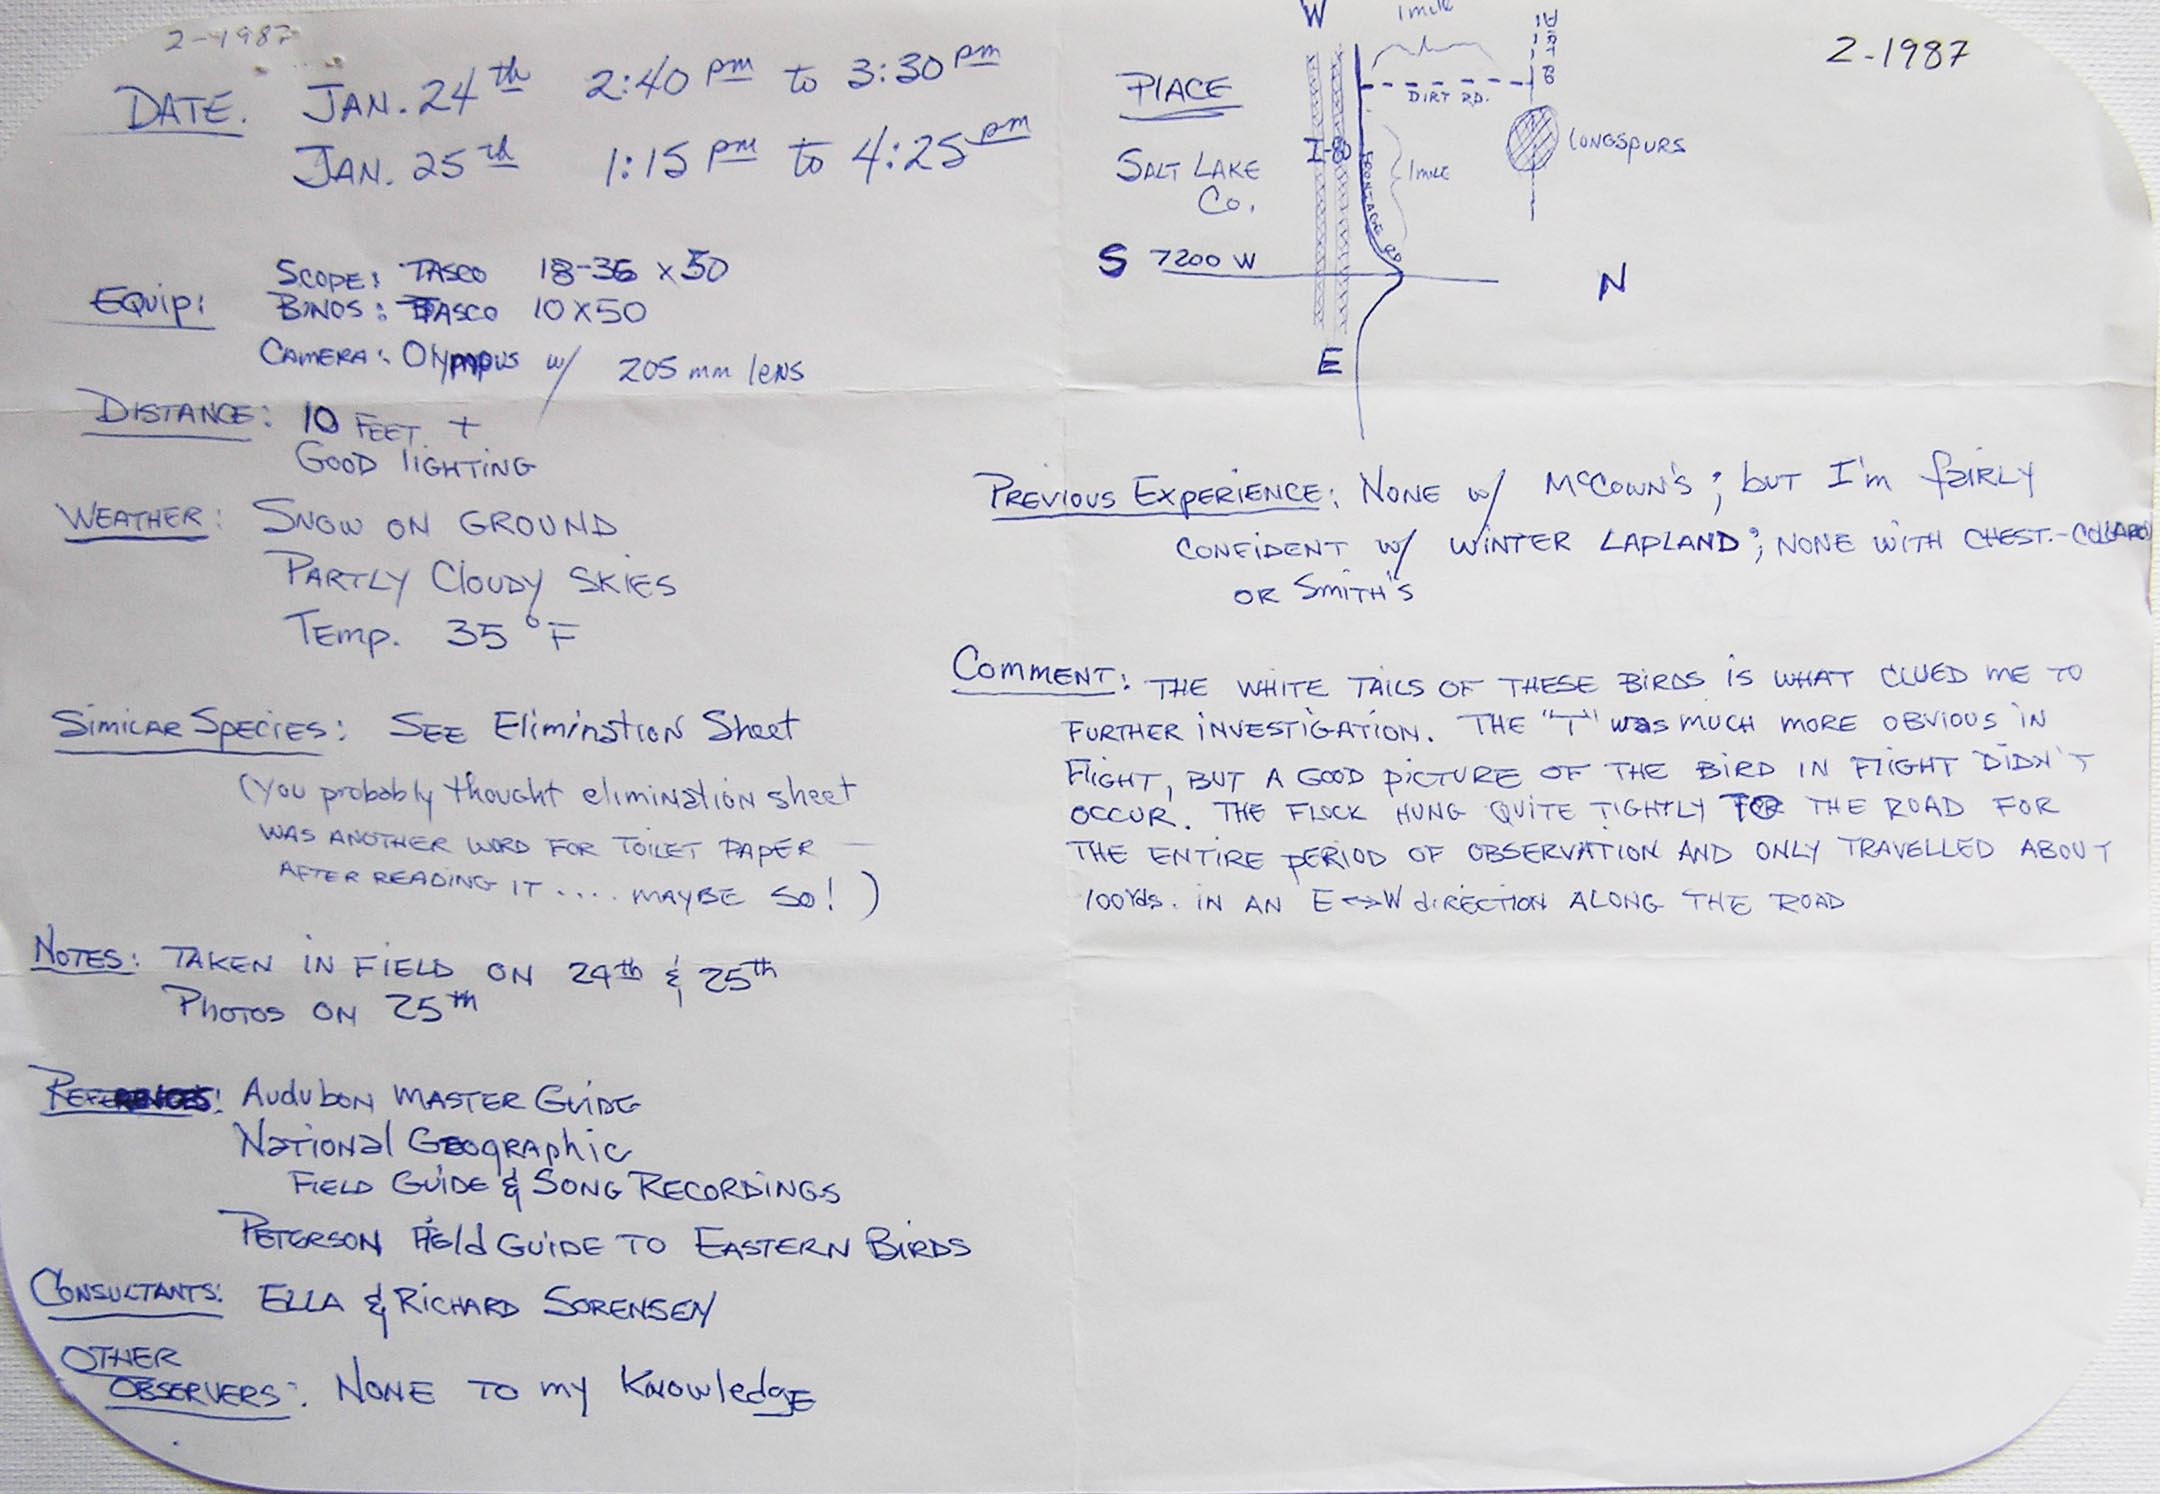 2-1987
DATE. JAN. 24th 2:40 pm to 3:30 pm
JAN. 25rd 1:15 pm to 4:25 pm
EQUIP: SCOPE: TASCO 18-36 x 50
BINOS: TASCO 10X50
CAMERA: OLYMPUS w/ 205 mm lens
DISTANCE: 10 FEET +
GOOD LIGHTING
WEATHER: SNOW ON GROUND
PARTLY CLOUDY SKIES
TEMP. 35°F
SIMILAR SPECIES: SEE Elimination Sheet
(You probably thought elimination sheet
WAS ANOTHER WORD FOR TOILET PAPER —
AFTER READING IT .... MAYBE SO!)
NOTES: TAKEN IN FIELD ON 24th & 25th
Photos ON 25th
REFERENCES: Audubon MASTER GUIDE
National Geographic
FIELD GUIDE & SONG RECORDINGS
PETERSON Field GUIDE TO EASTERN BIRDS
CONSULTANTS: ELLA & RICHARD SORENSEN
OTHER
OBSERVERS: NONE TO my Knowledge
2-1987
PLACE
SALT LAKE
Co.
W
1 mile
DIRT RD
DIRT RD.
LONGSPURS
I-80
FRONTAGE RD
1 mile
S 7200 W
N
E
PREVIOUS EXPERIENCE: NONE w/ McCown's; but I'm fairly
CONFIDENT w/ WINTER LAPLAND; NONE WITH CHEST.-COLLARED
OR SMITH'S
COMMENT: THE WHITE TAILS OF THESE BIRDS IS WHAT CLUED ME TO
FURTHER INVESTIGATION. THE "T" was MUCH MORE OBVIOUS IN
FLIGHT, BUT A GOOD PICTURE OF THE BIRD IN FLIGHT DIDN'T
OCCUR. THE FLOCK HUNG QUITE TIGHTLY TO THE ROAD FOR
THE ENTIRE PERIOD OF OBSERVATION AND ONLY TRAVELLED ABOUT
100 Yds. IN AN E↔W DIRECTION ALONG THE ROAD